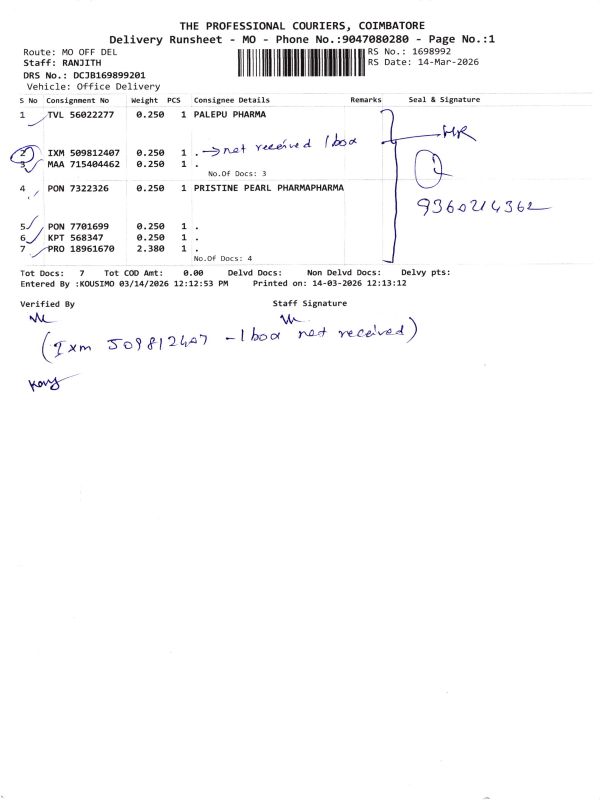 THE PROFESSIONAL COURIERS, COIMBATORE
Delivery Runsheet - MO - Phone No.:9047080280 - Page No.:1
Route: MO OFF DEL RS No.: 1698992
Staff: RANJITH RS Date: 14-Mar-2026
DRS No.: DCJB169899201
Vehicle: Office Delivery
S No Consignment No Weight PCS Consignee Details Remarks Seal & Signature
1 TVL 56022277 0.250 1 PALEPU PHARMA
2 IXM 509812407 0.250 1 . → not received 1 box
3 MAA 715404462 0.250 1 .
No.Of Docs: 3
4 PON 7322326 0.250 1 PRISTINE PEARL PHARMAPHARMA
9360214362
5 PON 7701699 0.250 1 .
6 KPT 568347 0.250 1 .
7 PRO 18961670 2.380 1 .
No.Of Docs: 4
Tot Docs: 7 Tot COD Amt: 0.00 Delvd Docs: Non Delvd Docs: Delvy pts:
Entered By :KOUSIMO 03/14/2026 12:12:53 PM Printed on: 14-03-2026 12:13:12
Verified By Staff Signature
(Ixm 509812407 - 1 box not received)